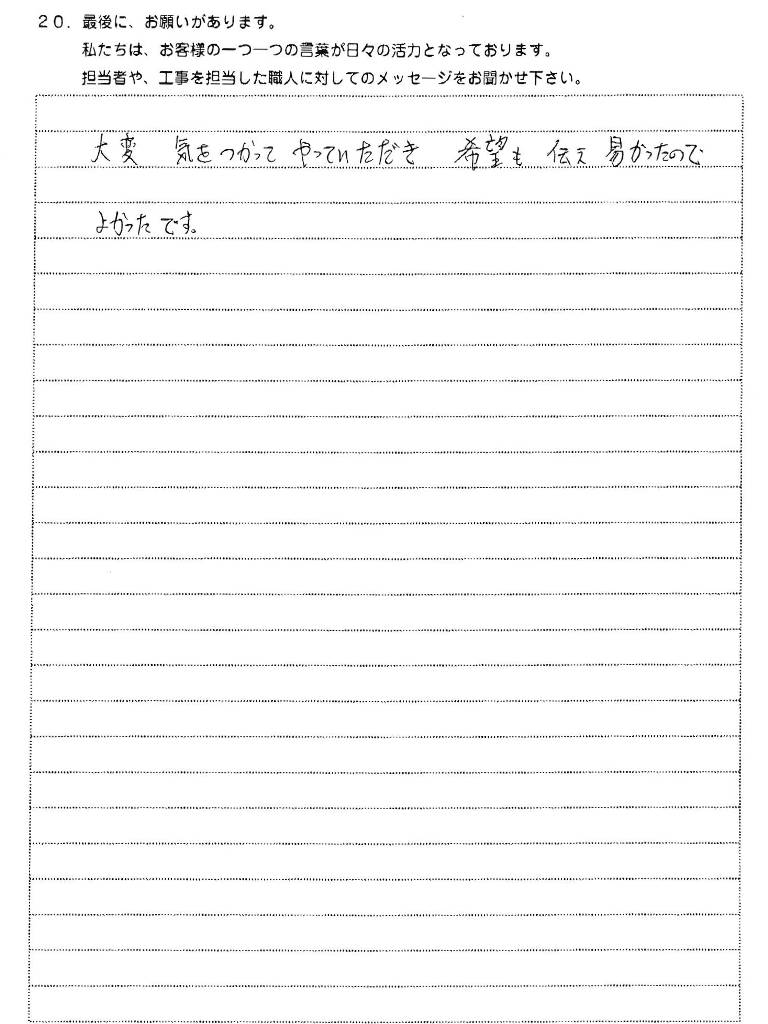 20. 最後に、お願いがあります。
私たちは、お客様の一つ一つの言葉が日々の活力となっております。
担当者や、工事を担当した職人に対してのメッセージをお聞かせ下さい。
大変 気をつかって やっていただき 希望も 伝え 易かったので
よかったです。